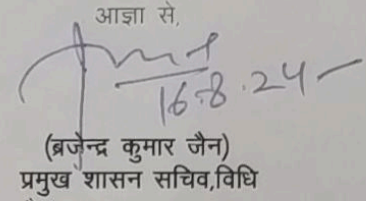 आज्ञा से,
16.8.24
(ब्रजेन्द्र कुमार जैन)
प्रमुख शासन सचिव,विधि